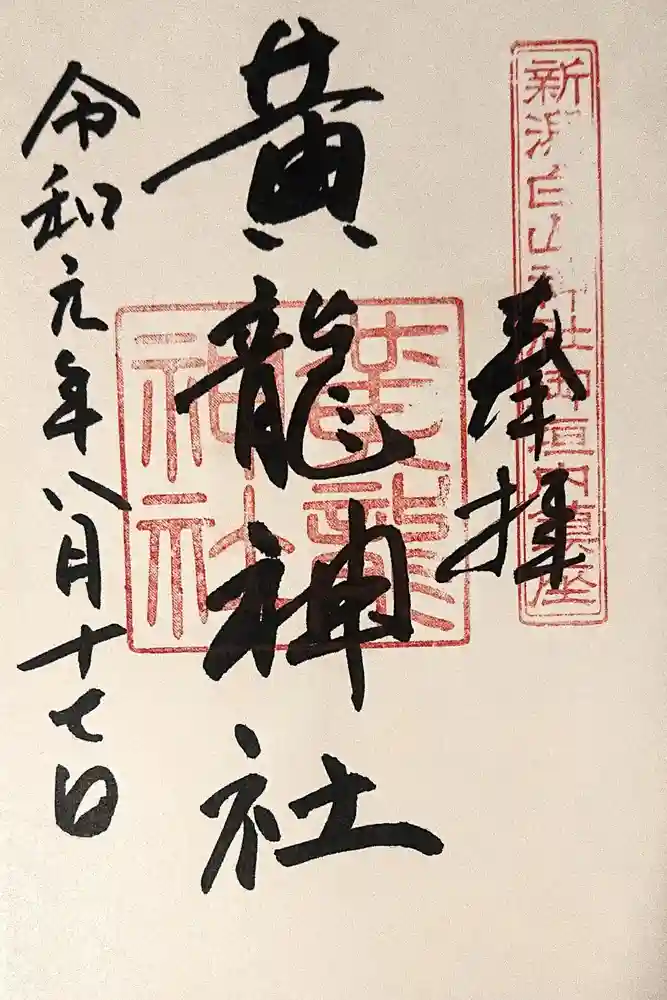 新潟白山神社御垣内鎮座
奉拝
黄龍神社
黄龍
神社
令和元年八月十七日